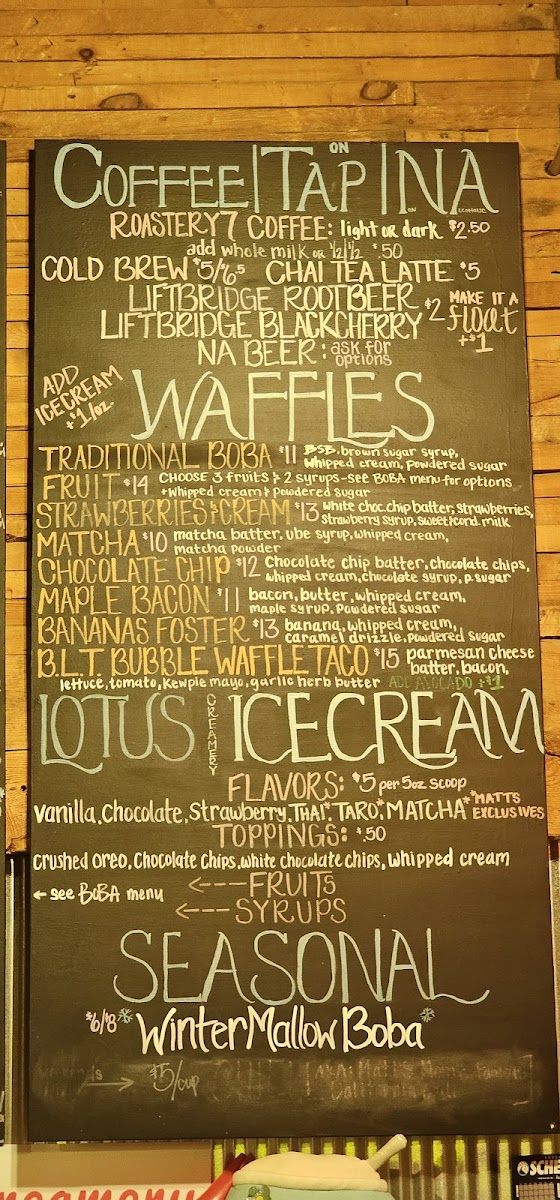 COFFEE | ON TAP | NA
ROASTERY 7 COFFEE: light or dark $2.50
add whole milk or 1/2 1/2 $.50
COLD BREW $5/$6.5 CHAI TEA LATTE $5
LIFTBRIDGE ROOTBEER
LIFTBRIDGE BLACKCHERRY $2 MAKE IT A float +$1
NA BEER: ask for options
ADD ICECREAM +$1/oz.
WAFFLES
TRADITIONAL BOBA $11 BSB, brown sugar syrup,
whipped cream, powdered sugar
FRUIT $14 CHOOSE 3 fruits & 2 syrups - see BOBA menu for options
+ whipped cream & powdered sugar
STRAWBERRIES & CREAM $13 white choc. chip batter, strawberries,
strawberry syrup, sweet cond. milk
MATCHA $10 matcha batter, ube syrup, whipped cream,
matcha powder
CHOCOLATE CHIP $12 Chocolate chip batter, chocolate chips,
whipped cream, chocolate syrup, p. sugar
MAPLE BACON $11 bacon, butter, whipped cream,
maple syrup, powdered sugar
BANANAS FOSTER $13 banana, whipped cream,
caramel drizzle, powdered sugar
B.L.T. BUBBLE WAFFLE TACO $15 parmesan cheese
batter, bacon,
lettuce, tomato, kewpie mayo, garlic herb butter ADD AVOCADO +$1
LOTUS CREAMERY ICECREAM
FLAVORS: $5 per 5oz scoop
vanilla, chocolate, strawberry, THAI*, TARO*, MATCHA* *MATTS EXCLUSIVES
TOPPINGS: $.50
crushed oreo, chocolate chips, white chocolate chips, whipped cream
← see BOBA menu <--- FRUITS
<--- SYRUPS
SEASONAL
$6/$8 Winter Mallow Boba
→ $5/cup
reamery
SCHE